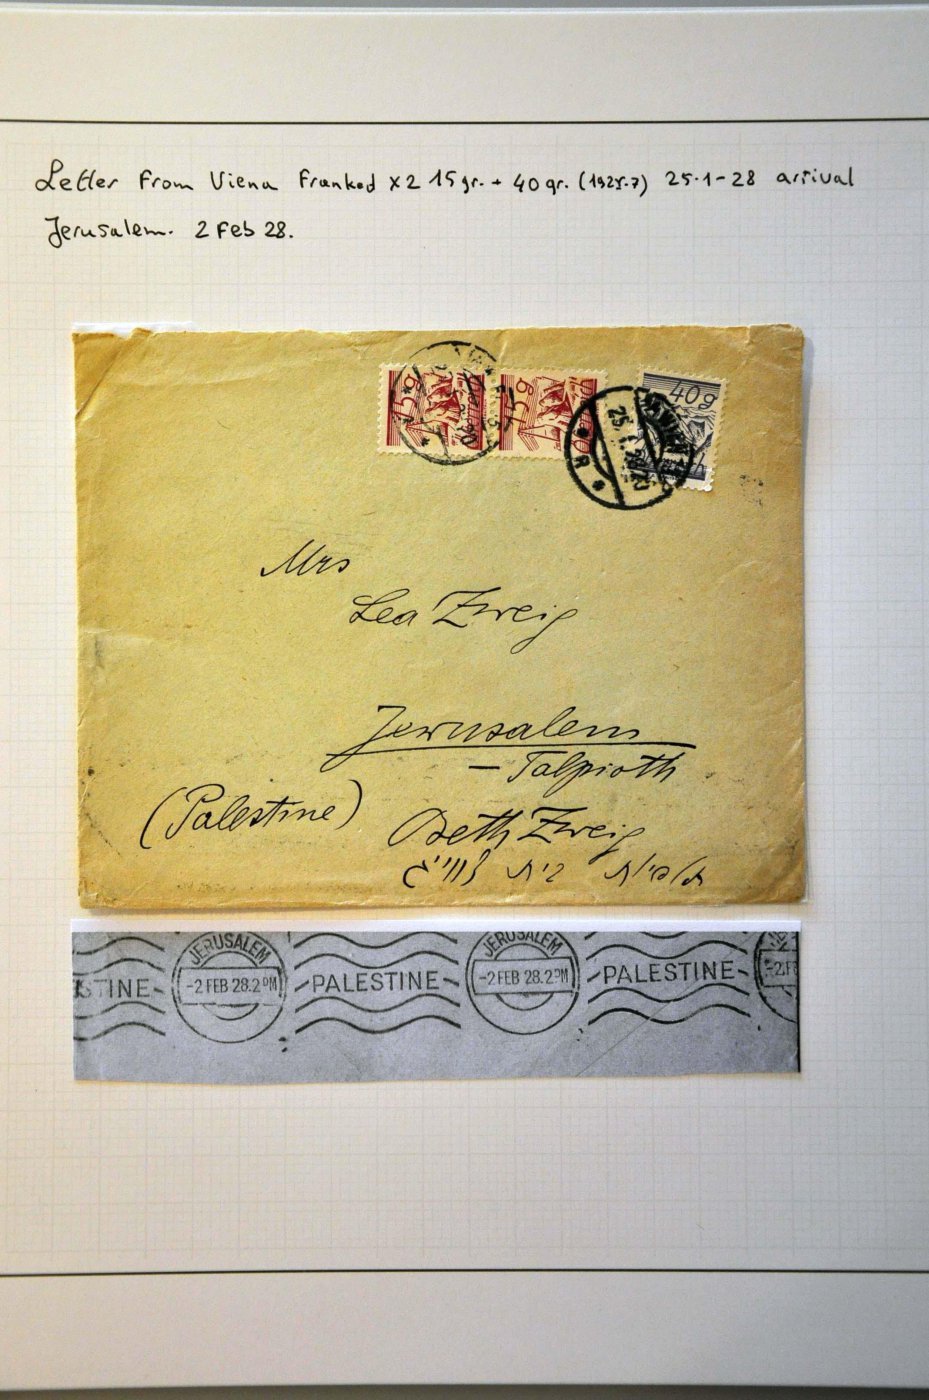 Letter From Viena Franked x2 15gr. + 40gr. (1925-7) 25-1-28 arrival
Jerusalem. 2 Feb 28.
15g
15g
40g
WIEN
25. I. 28
* R *
Mrs
Lea Zweig
Jerusalem
— Talpioth
(Palestine)
Beth Zweig
תלפיות בית צווייג
STINE
JERUSALEM
-2 FEB 28.2 PM
PALESTINE
JERUSALEM
-2 FEB 28.2 PM
PALESTINE
-2 F